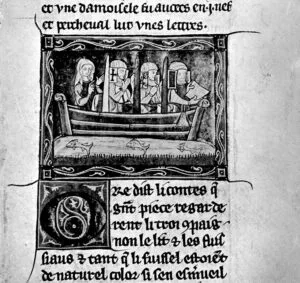 et vne damoisele su auœc en .i. nef
et percheual lut vnes lettres.
Ore dist li contes q
gnt piece regarde
rent li troi 9paig
non le lit & les fus
siaus & tant q li fuissel estoient
de naturel color si sen esmueil